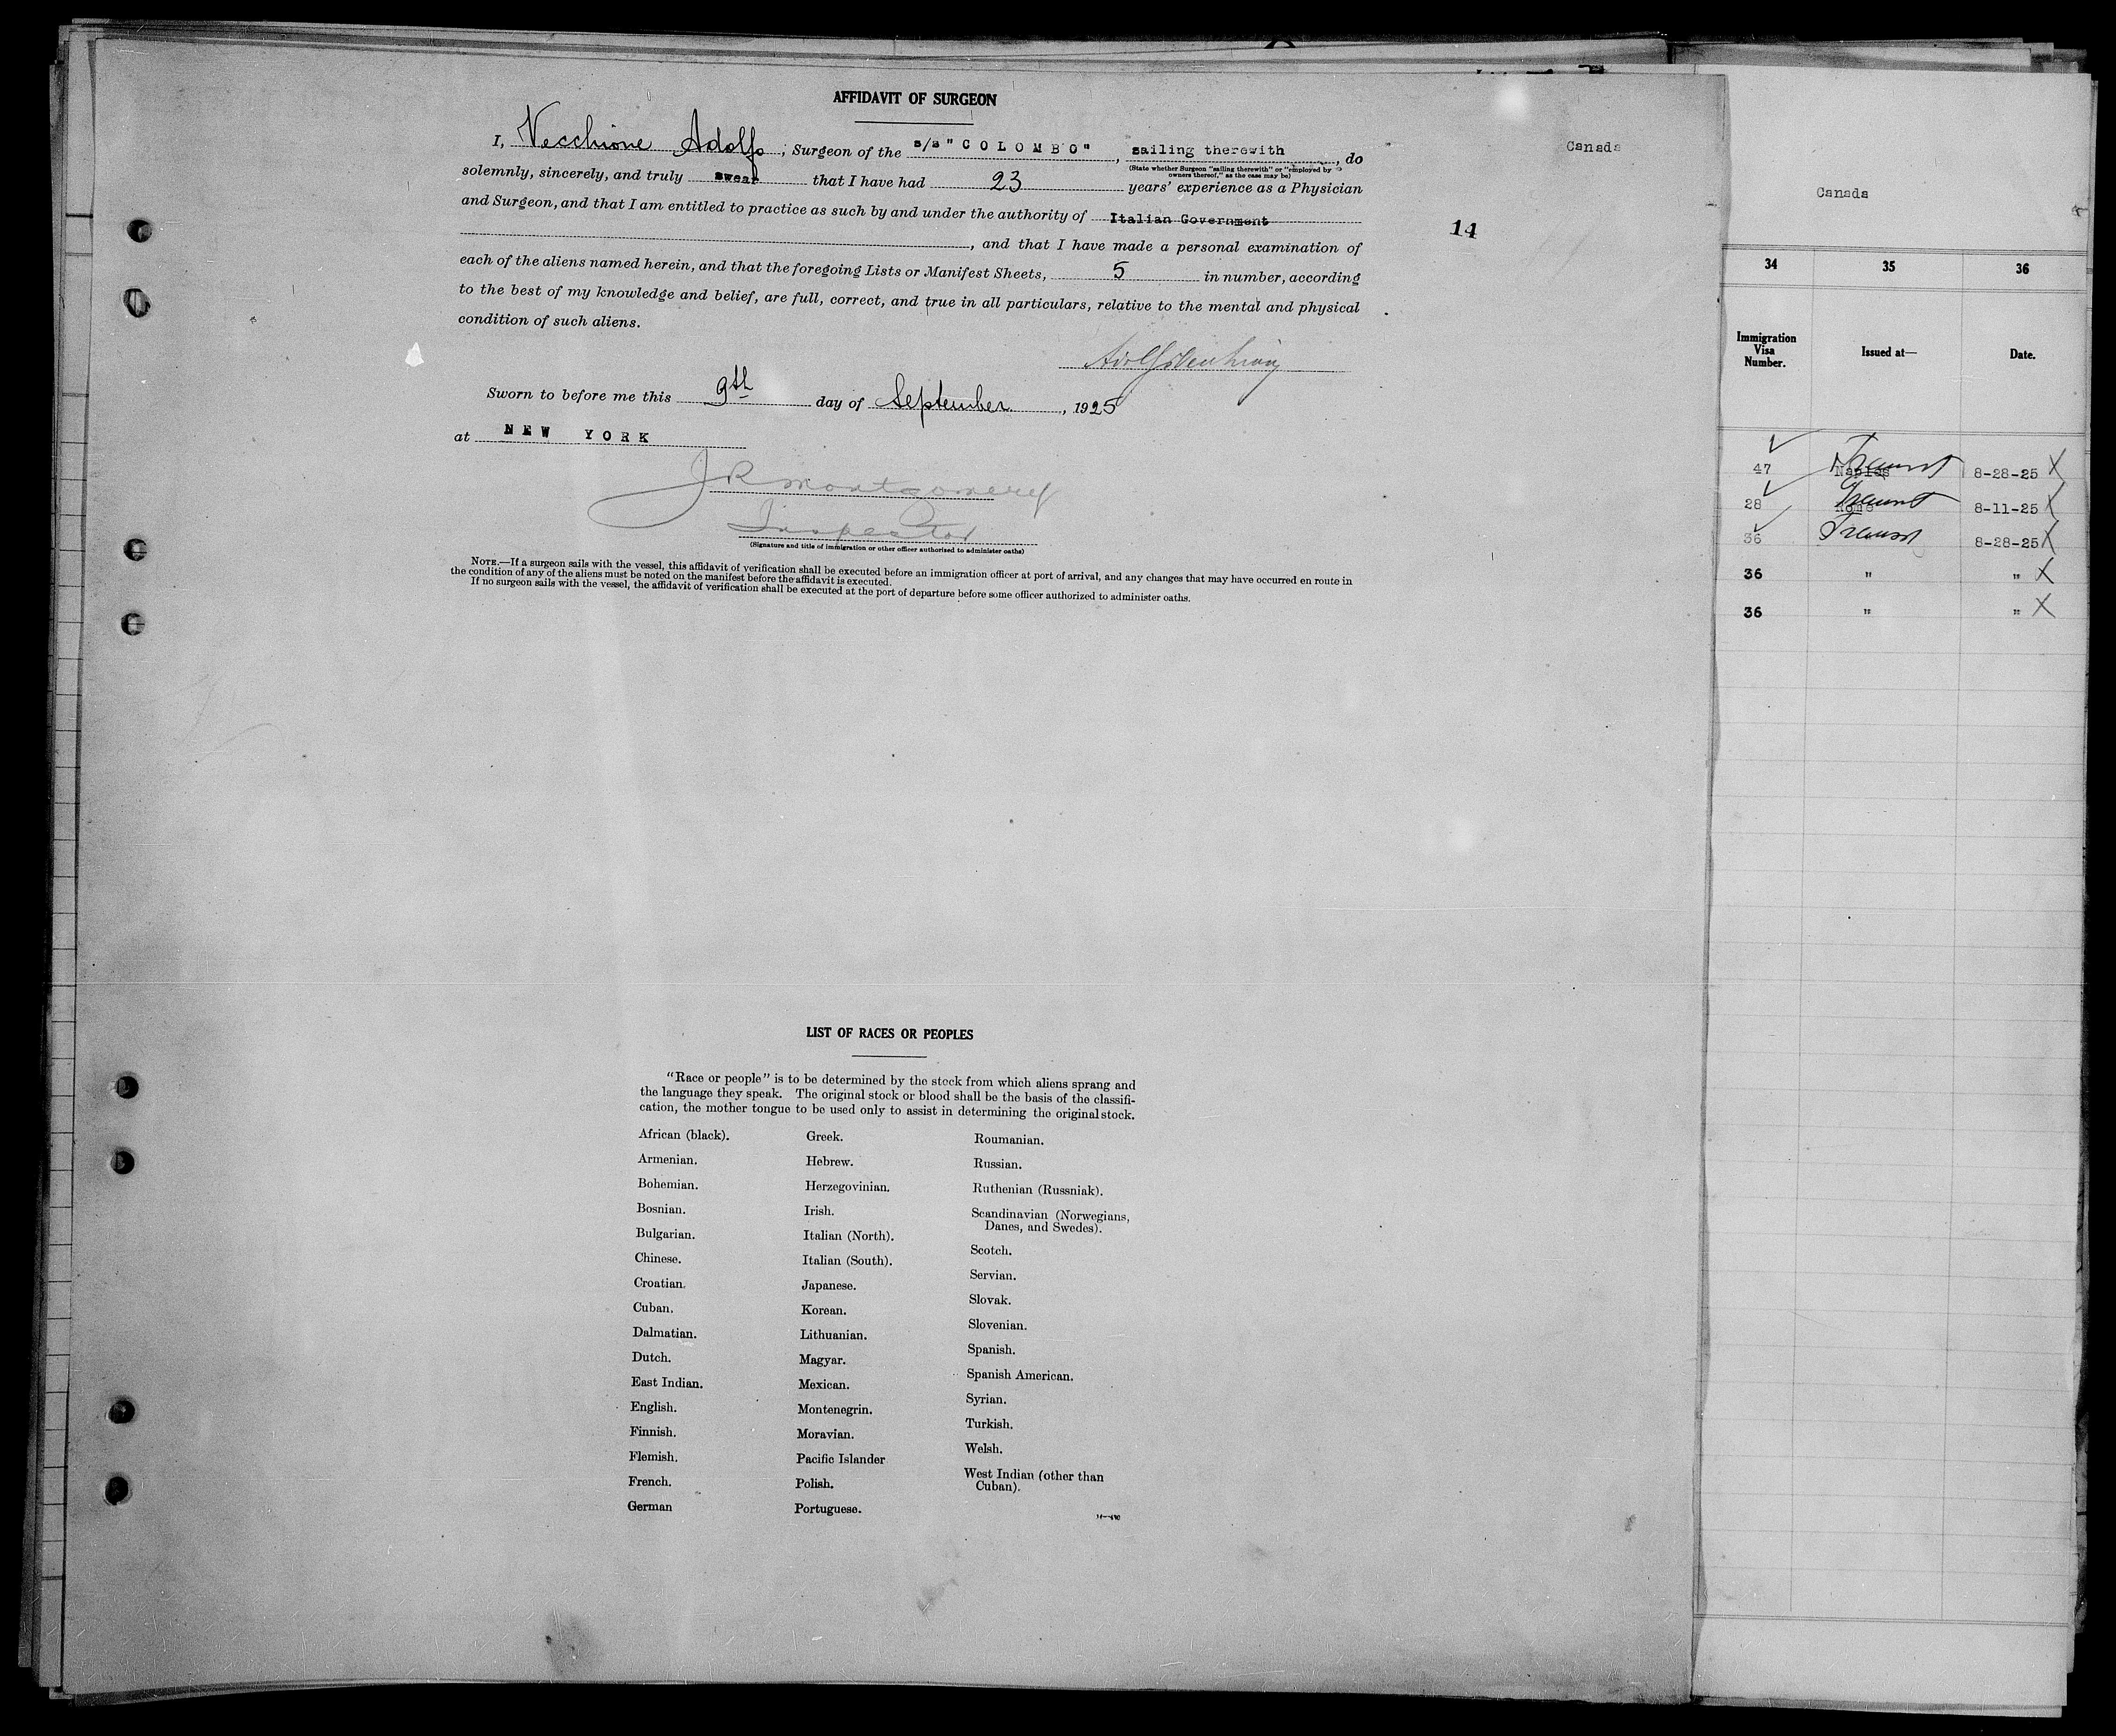 AFFIDAVIT OF SURGEON
I, Vecchione Adolfo, Surgeon of the s/s "COLOMBO", sailing therewith, do
(State whether Surgeon "sailing therewith" or "employed by owners thereof," as the case may be)
solemnly, sincerely, and truly swear that I have had 23 years' experience as a Physician
and Surgeon, and that I am entitled to practice as such by and under the authority of Italian Government
, and that I have made a personal examination of
each of the aliens named herein, and that the foregoing Lists or Manifest Sheets, 5 in number, according
to the best of my knowledge and belief, are full, correct, and true in all particulars, relative to the mental and physical
condition of such aliens.
Sworn to before me this 9th day of September, 1925
at NEW YORK
J R Montgomery
Inspector
(Signature and title of immigration or other officer authorized to administer oaths)
NOTE.—If a surgeon sails with the vessel, this affidavit of verification shall be executed before an immigration officer at port of arrival, and any changes that may have occurred en route in
the condition of any of the aliens must be noted on the manifest before the affidavit is executed.
If no surgeon sails with the vessel, the affidavit of verification shall be executed at the port of departure before some officer authorized to administer oaths.
LIST OF RACES OR PEOPLES
"Race or people" is to be determined by the stock from which aliens sprang and
the language they speak. The original stock or blood shall be the basis of the classifi-
cation, the mother tongue to be used only to assist in determining the original stock.
African (black).
Armenian.
Bohemian.
Bosnian.
Bulgarian.
Chinese.
Croatian.
Cuban.
Dalmatian.
Dutch.
East Indian.
English.
Finnish.
Flemish.
French.
German
Greek.
Hebrew.
Herzegovinian.
Irish.
Italian (North).
Italian (South).
Japanese.
Korean.
Lithuanian.
Magyar.
Mexican.
Montenegrin.
Moravian.
Pacific Islander
Polish.
Portuguese.
Roumanian.
Russian.
Ruthenian (Russniak).
Scandinavian (Norwegians,
Danes, and Swedes).
Scotch.
Servian.
Slovak.
Slovenian.
Spanish.
Spanish American.
Syrian.
Turkish.
Welsh.
West Indian (other than
Cuban).
Canada
14
Canada
34 35 36
Immigration Visa Number. Issued at— Date.
47 Naples Transit 8-28-25 X
28 Rome Transit 8-11-25 X
36 Transit 8-28-25 X
36 " " X
36 " " X